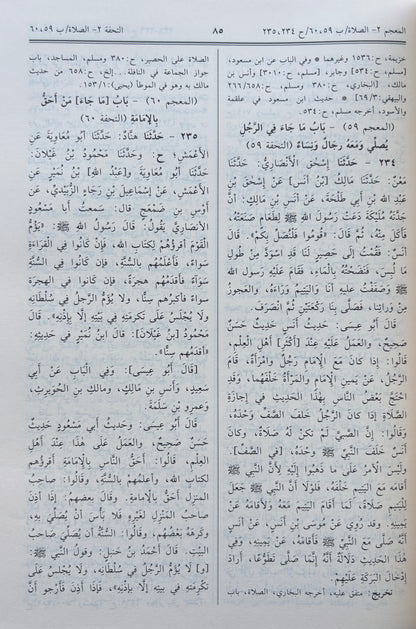 المعجم ٢- الصلاة/ب ٦٠،٥٩/ح ٢٣٥،٢٣٤
٨٥
التحفة ٢- الصلاة/ب ٦٠،٥٩
خزيمة، ح:١٥٣٦ وغيرهما * وفي الباب عن أنس بن
[مسلم، ح:٥٣٤] وجابر، [مسلم، ح:٣٠١٠] وأنس بن
مالك، [البخاري، ح:٣٨٠ ومسلم، ح:٢٦٦/٦٥٨
البيهقي:٦٩/٣] * حديث ابن مسعود في علقمة
والأسود، أخرجه مسلم، ح:٥٣٤.
(المعجم ٥٩) - بَابُ مَا جَاءَ فِي الرَّجُلِ
يُصَلِّي وَمَعَهُ رِجَالٌ وَنِسَاءٌ (التحفة ٥٩)
٢٣٤ - حَدَّثَنَا إِسْحَقُ الْأَنْصَارِيُّ: حَدَّثَنَا
مَعْنٌ: حَدَّثَنَا مَالِكُ [بْنُ أَنَسٍ] عَنْ إِسْحَقَ بْنِ
عَبْدِ اللهِ بْنِ أَبِي طَلْحَةَ، عَنْ أَنَسِ بْنِ مَالِكٍ: أَنَّ
جَدَّتَهُ مُلَيْكَةَ دَعَتْ رَسُولَ اللهِ ﷺ لِطَعَامٍ صَنَعَتْهُ،
فَأَكَلَ مِنْهُ، ثُمَّ قَالَ: «قُومُوا فَلْنُصَلِّ بِكُمْ». قَالَ
أَنَسٌ: فَقُمْتُ إِلَى حَصِيرٍ لَنَا قَدِ اسْوَدَّ مِنْ طُولِ
مَا لُبِسَ، فَنَضَحْتُهُ بِالْمَاءِ، فَقَامَ عَلَيْهِ رَسُولُ اللهِ
ﷺ وَصَفَفْتُ عَلَيْهِ أَنَا وَالْيَتِيمُ وَرَاءَهُ، وَالْعَجُوزُ
مِنْ وَرَائِنَا، فَصَلَّى بِنَا رَكْعَتَيْنِ ثُمَّ انْصَرَفَ.
قَالَ أَبُو عِيسَى: حَدِيثُ أَنَسٍ حَدِيثٌ حَسَنٌ
صَحِيحٌ، وَالْعَمَلُ عَلَيْهِ عِنْدَ [أَكْثَرِ] أَهْلِ الْعِلْمِ،
قَالُوا: إِذَا كَانَ مَعَ الْإِمَامِ رَجُلٌ وَامْرَأَةٌ، قَامَ
الرَّجُلُ، عَنْ يَمِينِ الْإِمَامِ وَالْمَرْأَةُ خَلْفَهُمَا، وَقَدِ
احْتَجَّ بَعْضُ النَّاسِ بِهَذَا الْحَدِيثِ فِي إِجَازَةِ
الصَّلَاةِ إِذَا كَانَ الرَّجُلُ خَلْفَ الصَّفِّ وَحْدَهُ،
وَقَالُوا: إِنَّ الصَّبِيَّ لَمْ تَكُنْ لَهُ صَلَاةٌ، وَكَانَ
أَنَسٌ خَلْفَ النَّبِيِّ ﷺ وَحْدَهُ، [فِي الصَّفِّ].
وَلَيْسَ الْأَمْرُ عَلَى مَا ذَهَبُوا إِلَيْهِ لِأَنَّ النَّبِيَّ ﷺ
أَقَامَهُ مَعَ الْيَتِيمِ خَلْفَهُ، فَلَوْلَا أَنَّ النَّبِيَّ ﷺ جَعَلَ
لِلْيَتِيمِ صَلَاةً، لَمَا أَقَامَ الْيَتِيمَ مَعَهُ وَلَأَقَامَهُ عَنْ
يَمِينِهِ. وَقَدْ رُوِيَ عَنْ مُوسَى بْنِ أَنَسٍ، عَنْ أَنَسٍ
أَنَّهُ صَلَّى مَعَ النَّبِيِّ ﷺ فَأَقَامَهُ، عَنْ يَمِينِهِ، وَفِي
هَذَا الْحَدِيثِ دَلَالَةٌ أَنَّهُ إِنَّمَا صَلَّى تَطَوُّعًا، أَرَادَ
إِدْخَالَ الْبَرَكَةِ عَلَيْهِمْ.
تخريج: متفق عليه، أخرجه البخاري، الصلاة، باب
الصلاة على الحصير، ح:٣٨٠ ومسلم، المساجد، باب
جواز الجماعة في النافلة... إلخ، ح:٦٥٨ من حديث
مالك به وهو في الموطأ (يحيى):١٥٣/١.
(المعجم ٦٠) - بَابُ [مَا جَاءَ] مَنْ أَحَقُّ
بِالْإِمَامَةِ (التحفة ٦٠)
٢٣٥ - حَدَّثَنَا هَنَّادٌ: حَدَّثَنَا أَبُو مُعَاوِيَةَ عَنِ
الْأَعْمَشِ؛ ح: وَحَدَّثَنَا مَحْمُودُ بْنُ غَيْلَانَ:
حَدَّثَنَا أَبُو مُعَاوِيَةَ و[عَبْدُ اللهِ] بْنُ نُمَيْرٍ عَنِ
الْأَعْمَشِ، عَنْ إِسْمَاعِيلَ بْنِ رَجَاءٍ الزُّبَيْدِيِّ، عَنْ
أَوْسِ بْنِ ضَمْعَجٍ قَالَ: سَمِعْتُ أَبَا مَسْعُودٍ
الْأَنْصَارِيَّ يَقُولُ: قَالَ رَسُولُ اللهِ ﷺ: «يَؤُمُّ
الْقَوْمَ أَقْرَؤُهُمْ لِكِتَابِ اللهِ، فَإِنْ كَانُوا فِي الْقِرَاءَةِ
سَوَاءً، فَأَعْلَمُهُمْ بِالسُّنَّةِ، فَإِنْ كَانُوا فِي السُّنَّةِ
سَوَاءً فَأَقْدَمُهُمْ هِجْرَةً، فَإِنْ كَانُوا فِي الْهِجْرَةِ
سَوَاءً فَأَكْبَرُهُمْ سِنًّا، وَلَا يُؤَمُّ الرَّجُلُ فِي سُلْطَانِهِ
وَلَا يُجْلَسُ عَلَى تَكْرِمَتِهِ فِي بَيْتِهِ إِلَّا بِإِذْنِهِ». قَالَ:
مَحْمُودُ [بْنُ غَيْلَانَ]: قَالَ ابْنُ نُمَيْرٍ فِي حَدِيثِهِ:
«أَقْدَمُهُمْ سِنًّا».
[قَالَ أَبُو عِيسَى]: وَفِي الْبَابِ عَنْ أَبِي
سَعِيدٍ، وَأَنَسِ بْنِ مَالِكٍ، وَمَالِكِ بْنِ الْحُوَيْرِثِ،
وَعَمْرِو بْنِ سَلِمَةَ.
قَالَ أَبُو عِيسَى: وَحَدِيثُ أَبِي مَسْعُودٍ حَدِيثٌ
حَسَنٌ صَحِيحٌ، وَالْعَمَلُ عَلَى هَذَا عِنْدَ أَهْلِ
الْعِلْمِ، قَالُوا: أَحَقُّ النَّاسِ بِالْإِمَامَةِ أَقْرَؤُهُمْ
لِكِتَابِ اللهِ، وَأَعْلَمُهُمْ بِالسُّنَّةِ، وَقَالُوا: صَاحِبُ
الْمَنْزِلِ أَحَقُّ بِالْإِمَامَةِ، وَقَالَ بَعْضُهُمْ: إِذَا أَذِنَ
صَاحِبُ الْمَنْزِلِ لِغَيْرِهِ فَلَا بَأْسَ أَنْ يُصَلِّيَ بِهِ،
وَكَرِهَهُ بَعْضُهُمْ، وَقَالُوا: السُّنَّةُ أَنْ يُصَلِّيَ صَاحِبُ
الْبَيْتِ. قَالَ أَحْمَدُ بْنُ حَنْبَلٍ: وَقَوْلُ النَّبِيِّ ﷺ:
[و] «لَا يُؤَمُّ الرَّجُلُ فِي سُلْطَانِهِ وَلَا يُجْلَسُ عَلَى
تَكْرِمَتِهِ فِي بَيْتِهِ إِلَّا بِإِذْنِهِ»، فَإِذَا أَذِنَ فَأَرْجُو أَنَّ